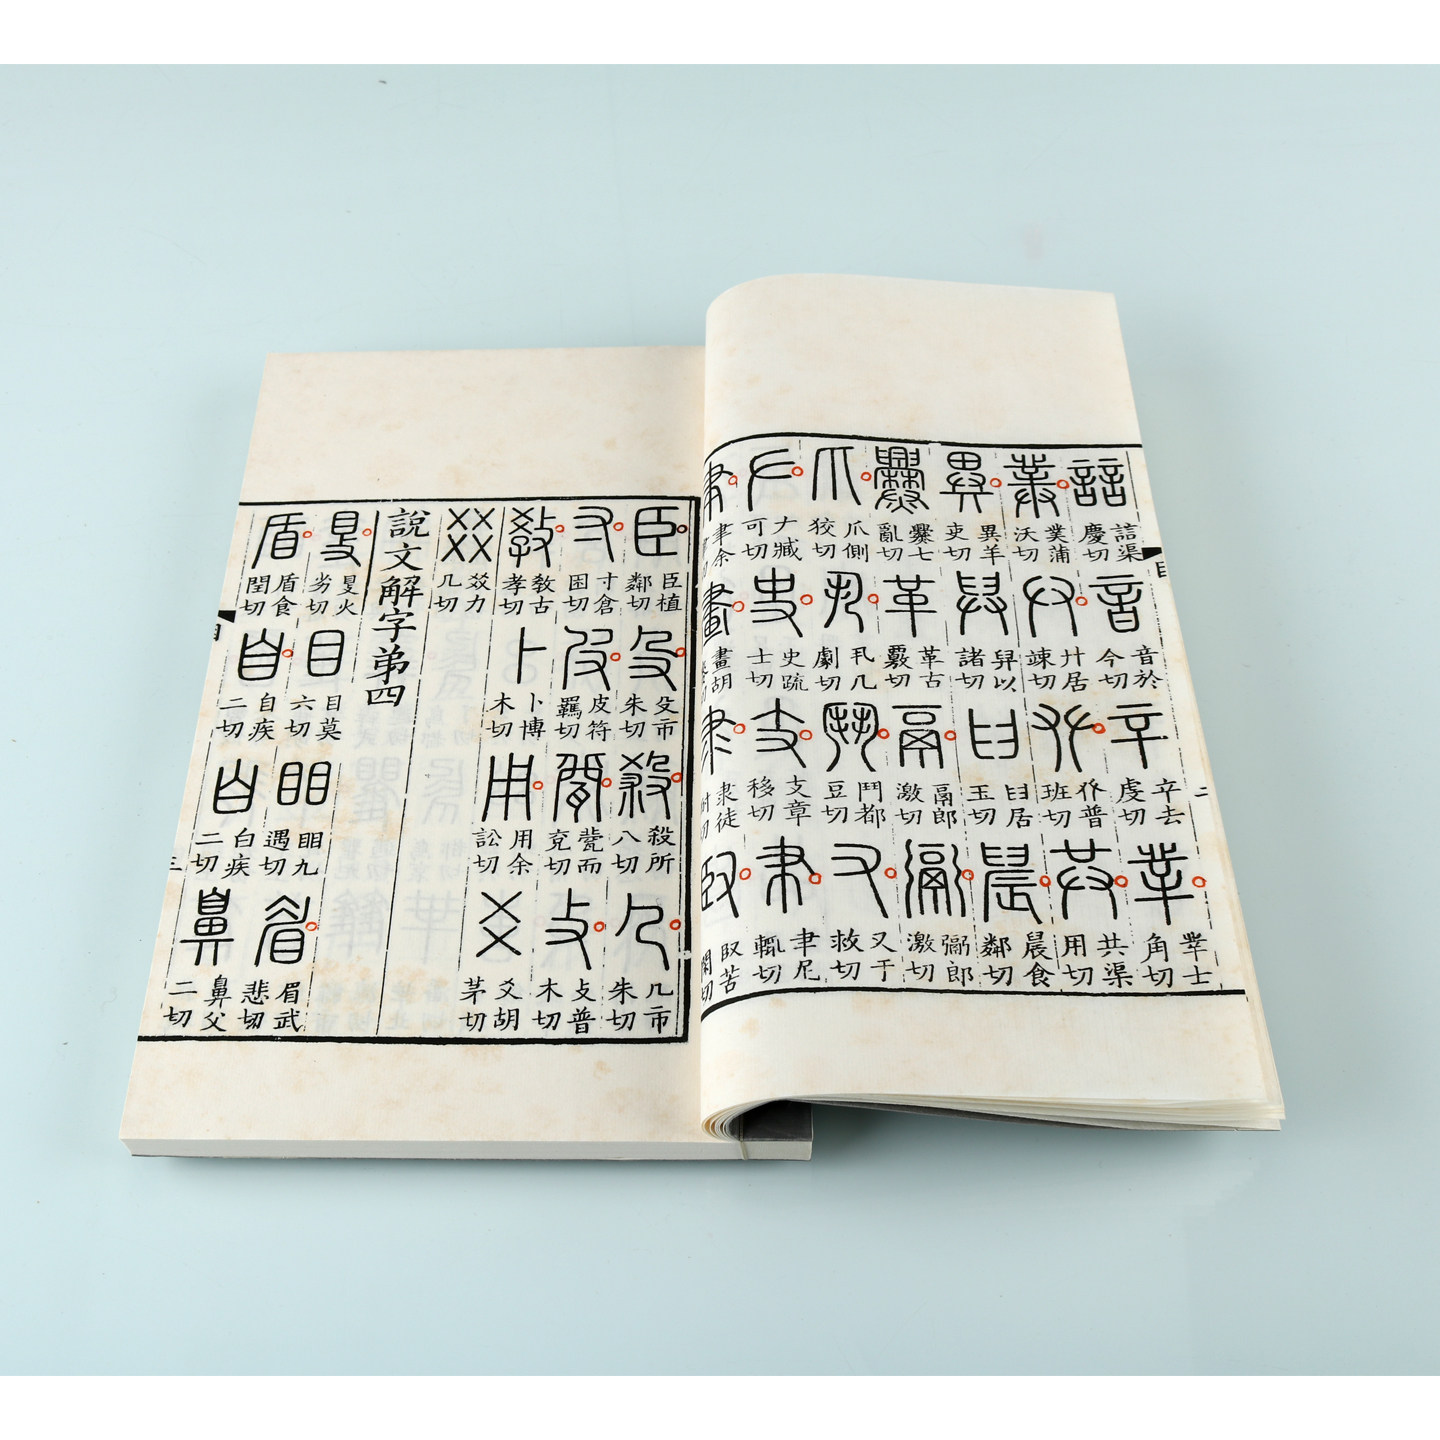 誩 誩渠慶切 音 音於今切 䇂 䇂去虔切 丵 丵士角切
菐 菐蒲沃切 廾 廾居竦切 𠬜 𠬜普班切 共 共渠用切
異 異羊吏切 舁 舁以諸切 𦥑 𦥑居玉切 晨 晨食鄰切
爨 爨七亂切 革 革古覈切 鬲 鬲郎激切 䰜 䰜郎激切
爪 爪側狡切 丮 丮几劇切 鬥 鬥都豆切 又 又于救切
𠂇 𠂇臧可切 史 史疏士切 支 支章移切 𦘒 𦘒尼輒切
聿 聿余切 畫 畫胡切 隶 隶徒切 臤 臤苦閑切
臣 臣植鄰切 殳 殳市朱切 殺 殺所八切 𠘧 𠘧市朱切
寸 寸倉困切 皮 皮符羈切 㼱 㼱而兗切 攴 攴普木切
敎 敎古孝切 卜 卜博木切 用 用余訟切 爻 爻胡茅切
㸚 㸚力几切
說文解字弟四
𥄎 𥄎火劣切 目 目莫六切 䀠 䀠九遇切 眉 眉武悲切
盾 盾食閏切 自 自疾二切 白 白疾二切 鼻 鼻父二切
目 三